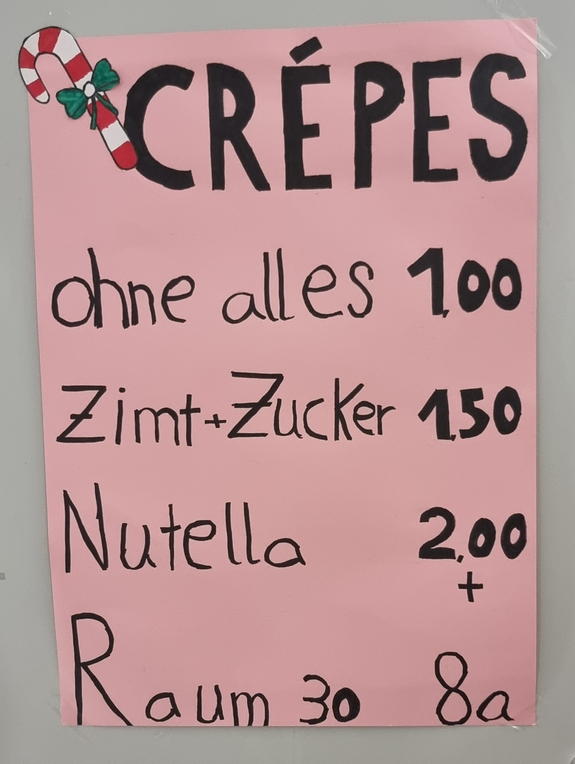 CRÉPES
ohne alles 1,00
Zimt+Zucker 1,50
Nutella 2,00
+
Raum 30 8a